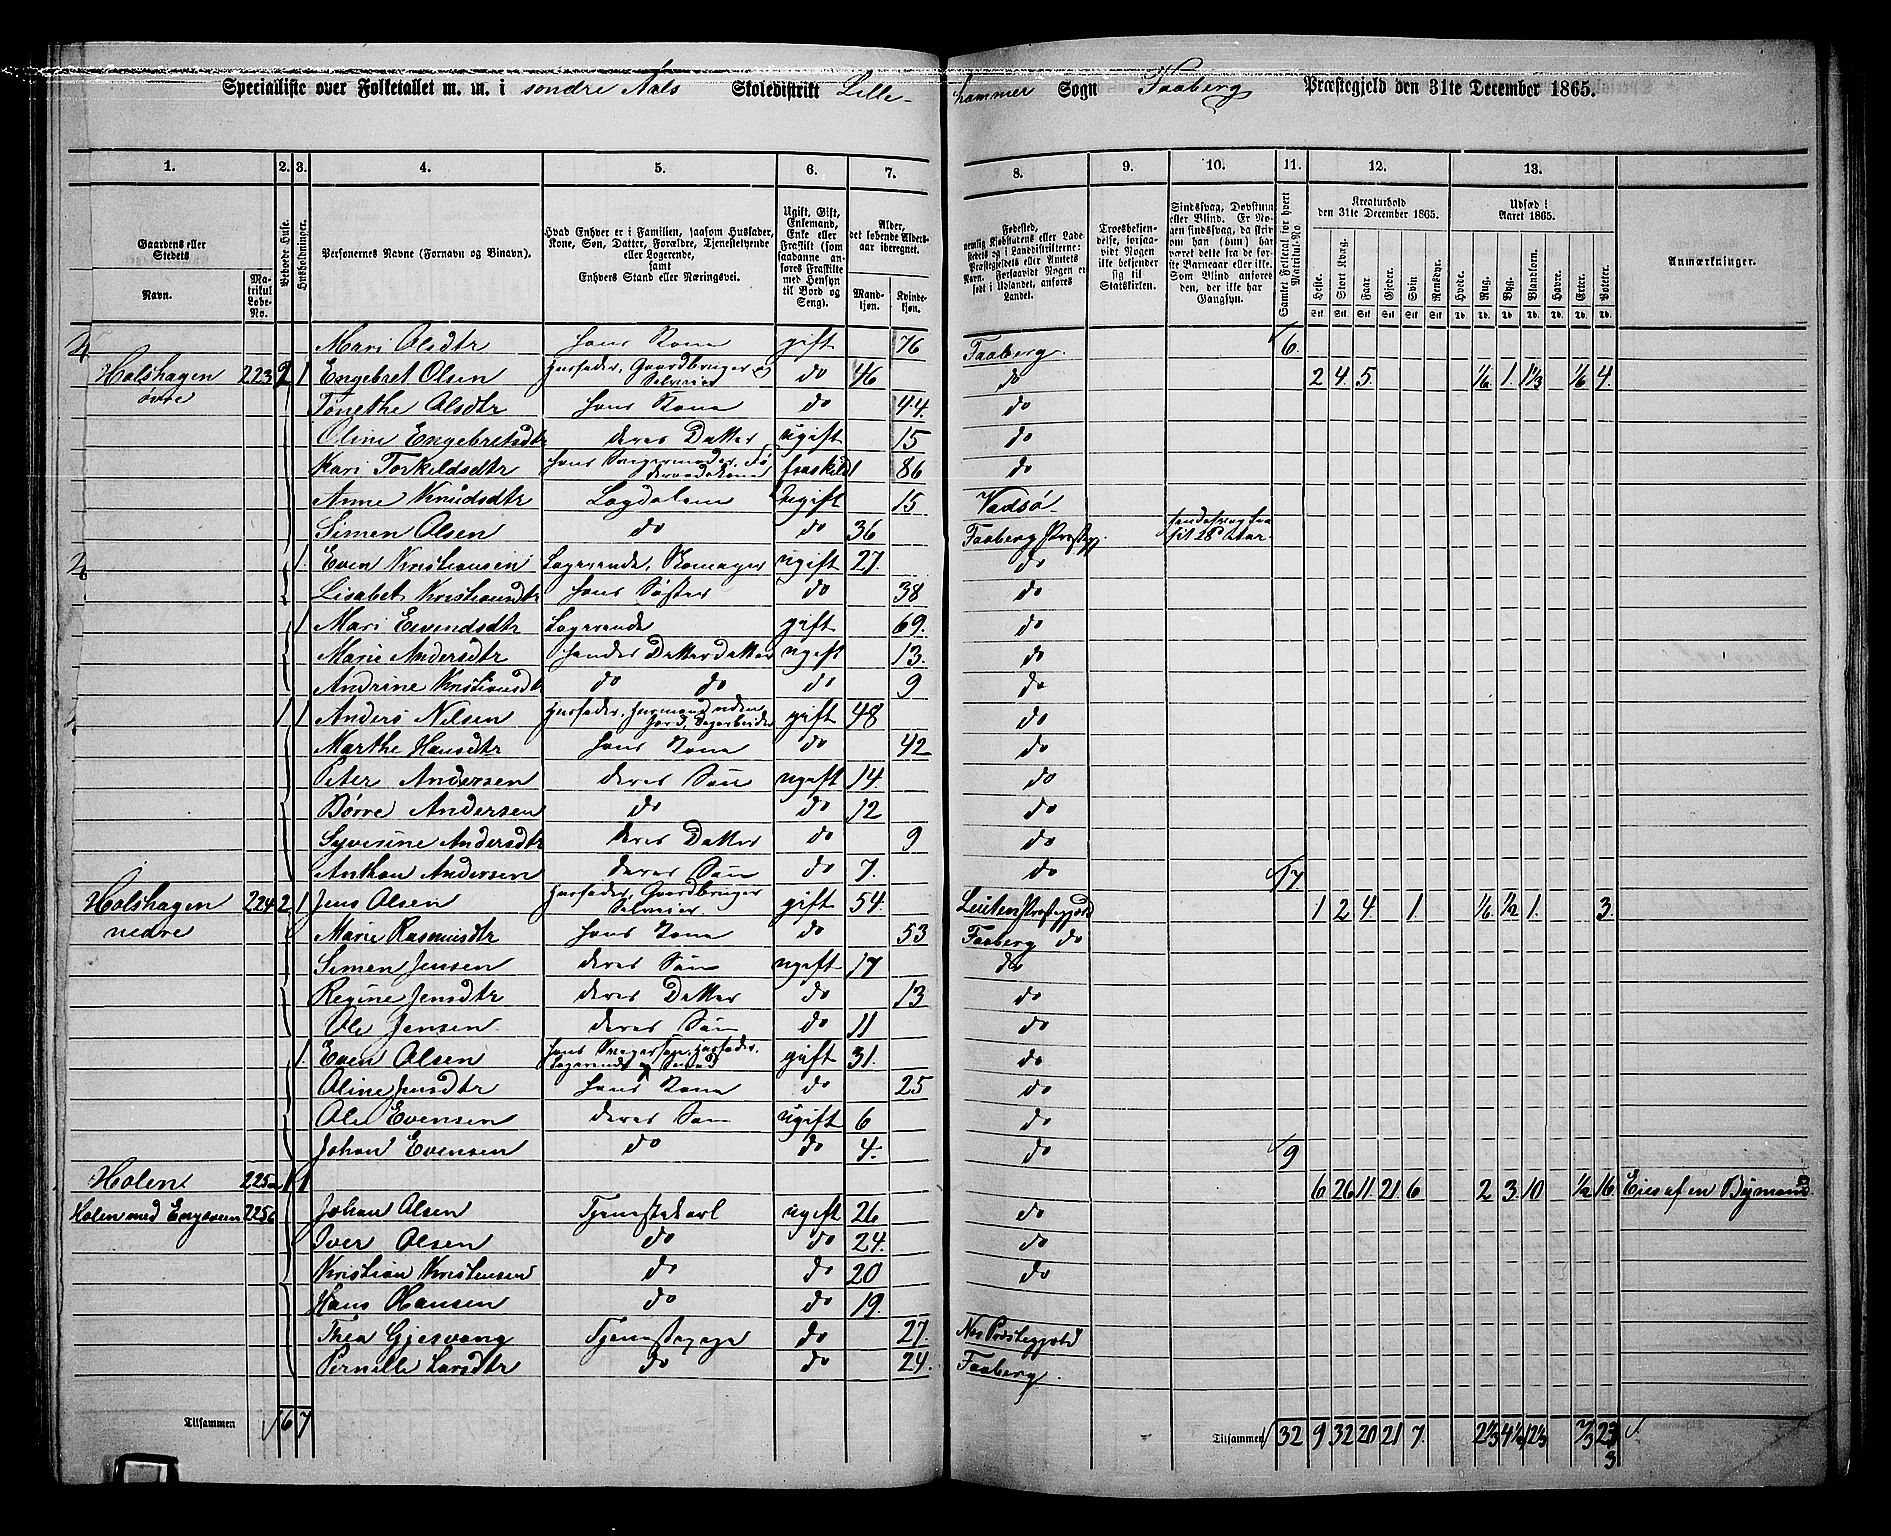 Specialliste over Folketallet m. m. i søndre Aals Skoledistrikt Lille-hammer Sogn Faaberg Præstegjeld den 31te December 1865.
1. 2. 3. 4. 5. 6. 7. 8. 9. 10. 11. 12. 13.
Gaardens eller Stedets
Navn.
Matrikul Løbe-No.
Beboede Huse.
Husholdninger.
Personernes Navne (Fornavn og Binavn).
Hvad Enhver er i Familien, saasom Husfader, Kone, Søn, Datter, Forældre, Tjenestetyende eller Logerende, samt Enhvers Stand eller Næringsvei.
Ugift, Gift, Enkemand, Enke eller Fraskilt (som saadanne anføres Fraskilte med Hensyn til Bord og Seng).
Alder, det løbende Alders-aar iberegnet.
Mandkjøn. Kvindekjøn.
Fødested,
Troesbekjendelse, forsaavidt Nogen ikke bekjender sig til Statskirken.
Samlet Folketal for hvert Matrikul-No.
Kreaturhold den 31te December 1865.
Heste. Stort Kvæg. Faar. Gjeder. Svin. Rensdyr.
Udsæd i Aaret 1865.
Hvede. Rug. Byg. Blandkorn. Havre. Erter. Poteter.
Anmærkninger.
Mari Olsdtr hans Kone gift 76 Faaberg. 6.
Holshagen 223 2 1 Engebret Olsen Husfader, Gaardbruger og Selveier do 46 do 2 4. 5. 1/6 1. 1 1/3 1/6 4.
øvre Tonethe Olsdtr hans Kone do 44. do
Oline Engebretsdtr deres Datter ugift 15 do
Kari Torkildsdtr fraskildt 86 do
Anne Knudsdtr Lægdslem ugift 15 Vadsø
Simen Olsen do do 36 Faaberg Præstegj.
1. Even Kristiansen Logerende, Skomager ugift 27. do
Lisabet Kristiansdtr hans Søster do 38 do
1 Mari Evendsdtr Logerende gift 69. do
Marie Andersdtr hendes Datterdatter ugift 13. do
Andrine Kristiansdtr do do do 9 do
1 1 Anders Nilsen Husfader, Husmand uden Jord, Dagarbeider gift 48 do
Marthe Hansdtr hans Kone do 42 do
Peter Andersen deres Søn ugift 14. do
Børre Andersen do do 12 do
Syvesine Andersdtr deres Datter do 9 do
Anthon Andersen deres Søn do 7. do 17.
Holshagen 224 2 1 Jens Olsen Husfader, Gaardbruger Selveier. gift 54. Leuten Præstegjeld 1 2 4. 1. 1/6 1/2 1. 3.
nedre Marie Rasmusdtr hans Kone do 53 Faaberg do
Simen Jensen deres Søn ugift 17 do
Regine Jensdtr deres Datter do 13 do
Ole Jensen deres Søn do 11 do
1. Even Olsen hans Svigersøn, Husfader, Logerende gift 31. do
Oline Jensdtr hans Kone do 25 do
Ole Evensen deres Søn ugift 6 do
Johan Evensen do do 4. do 9
Holen 225a 1 1 6 26 11 21 6 2 3. 10 1/2 16 Eies af en Bymand
Holen med Engsveen 225b Johan Olsen Tjenestekarl ugift 26 do
Iver Olsen do do 24. do
Kristian Kristensen do do 20 do
Hans Hansen do do 19.
Thea Gjesvang Tjenestepige do 27. Nes Præstegjeld
Pernille Larsdtr do do 24. Faaberg.
Tilsammen 6 7 Tilsammen 32 9 32 20 21 7. 2 1/3 4 1/2 12 1/3 2/3 23